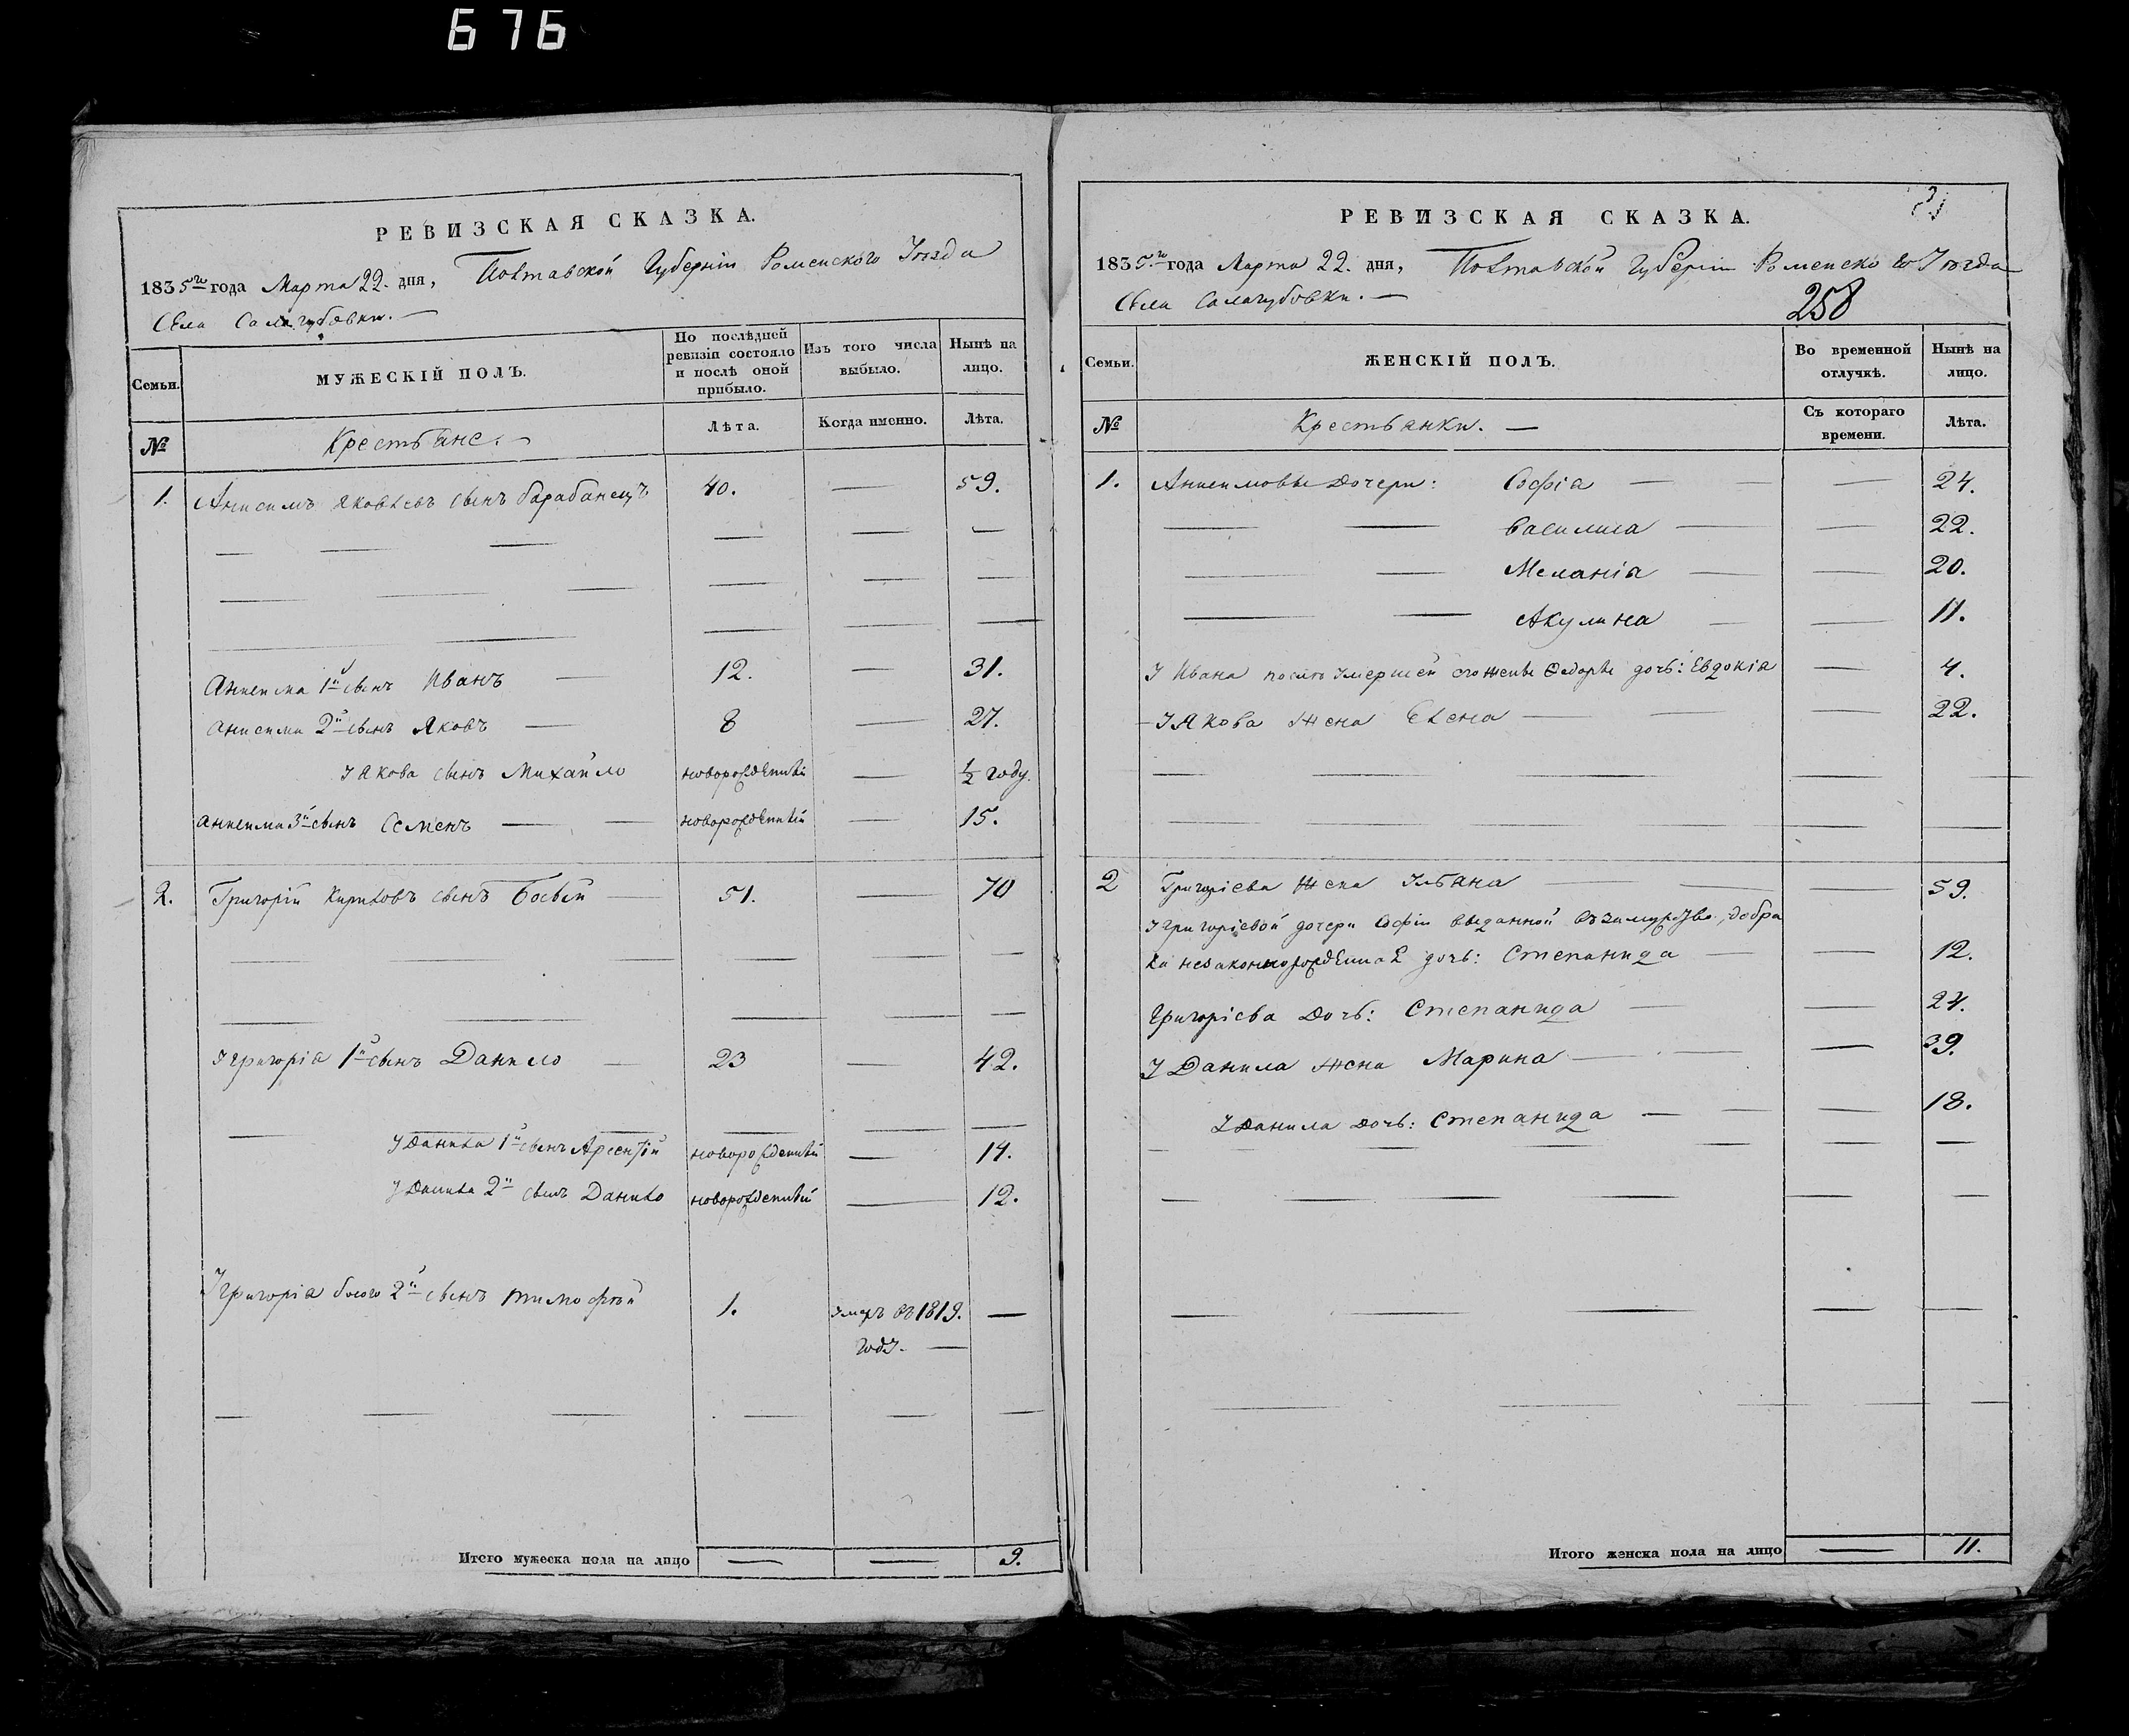 676
РЕВИЗСКАЯ СКАЗКА.
1835го года Марта 22. дня, Полтавской Губерніи Роменского Уѣзда
Села Салагубовки.
Семьи.
МУЖЕСКІЙ ПОЛЪ.
По послѣдней ревизіи состояло и послѣ оной прибыло.
Изъ того числа выбыло.
Нынѣ на лицо.
№
Крестьяне.
Лѣта.
Когда именно.
Лѣта.
1. Анисимъ Яковлевъ сынъ Барабанецъ 40. — 59.
Анисима 1й сынъ Иванъ — 12. — 31.
Анисима 2й сынъ Яковъ — 8 — 27.
У Якова сынъ Михайло новорожденный — ½ году.
Анисима 3й сынъ Семенъ — — новорожденный — 15.
2. Григорій Кириловъ сынъ Босый — 51. — 70
У Григорія 1й сынъ Данило — 23 — 42.
У Данила 1й сынъ Арсентій новорожденный — 14.
У Данила 2й сынъ Данило новорожденный — 12.
У Григорія Босого 2й сынъ Тимофѣй 1. Умеръ въ 1819. —
году. —
Итого мужеска пола на лицо — — 9.
РЕВИЗСКАЯ СКАЗКА.
1835.го года Марта 22. дня, Полтавской Губерніи Роменского Уѣзда
Села Салагубовки. —
258
Семьи.
ЖЕНСКІЙ ПОЛЪ.
Во временной отлучкѣ.
Нынѣ на лицо.
№
Крестьянки. —
Съ котораго времени.
Лѣта.
1. Анисимовы дочери: Софіа — — — 24.
— — Василиса — — 22.
— — Меланіа — — 20.
— — Акулина — — 11.
У Ивана послѣ умершей его жены Федоры дочь: Евдокіа — 4.
У Якова жена Елена — — — 22.
2 Григоріева жена Ульяна — — — 59.
У Григоріевой дочери Софіи выданной въ замужство,
незаконнорожденная дочь: Степанида — — 12.
Григоріева дочь: Степанида — — 24.
У Данила жена Марина — — — 39.
У Данила дочь: Степанида — — — 18.
Итого женска пола на лицо — 11.